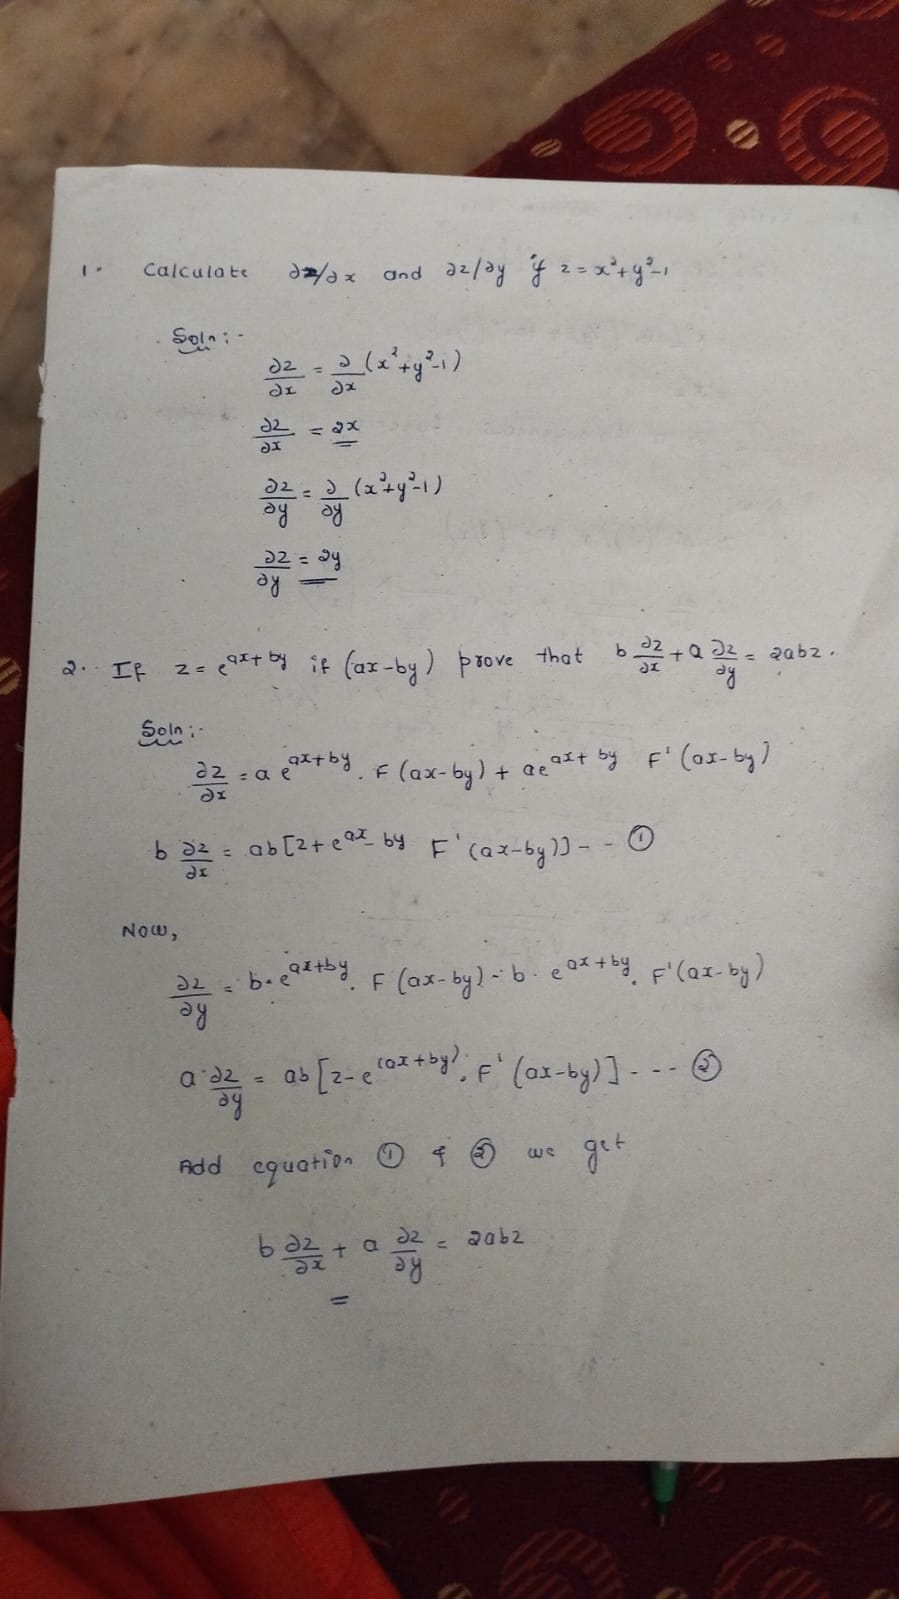 1. Calculate ∂z/∂x and ∂z/∂y if z = x²+y²-1
Soln:-
∂z/∂x = ∂/∂x (x²+y²-1)
∂z/∂x = 2x
∂z/∂y = ∂/∂y (x²+y²-1)
∂z/∂y = 2y
2. If z = e^ax+by if (ax-by) prove that b ∂z/∂x + a ∂z/∂y = 2abz.
Soln:-
∂z/∂x = a e^ax+by . F (ax-by) + ae^ax+by F' (ax-by)
b ∂z/∂x = ab[z+e^ax-by F' (ax-by)] -- ①
Now,
∂z/∂y = b.e^ax+by . F (ax-by) - b. e^ax+by . F' (ax-by)
a ∂z/∂y = ab[z-e^(ax+by) . F' (ax-by)] --- ②
Add equation ① & ② we get
b ∂z/∂x + a ∂z/∂y = 2abz